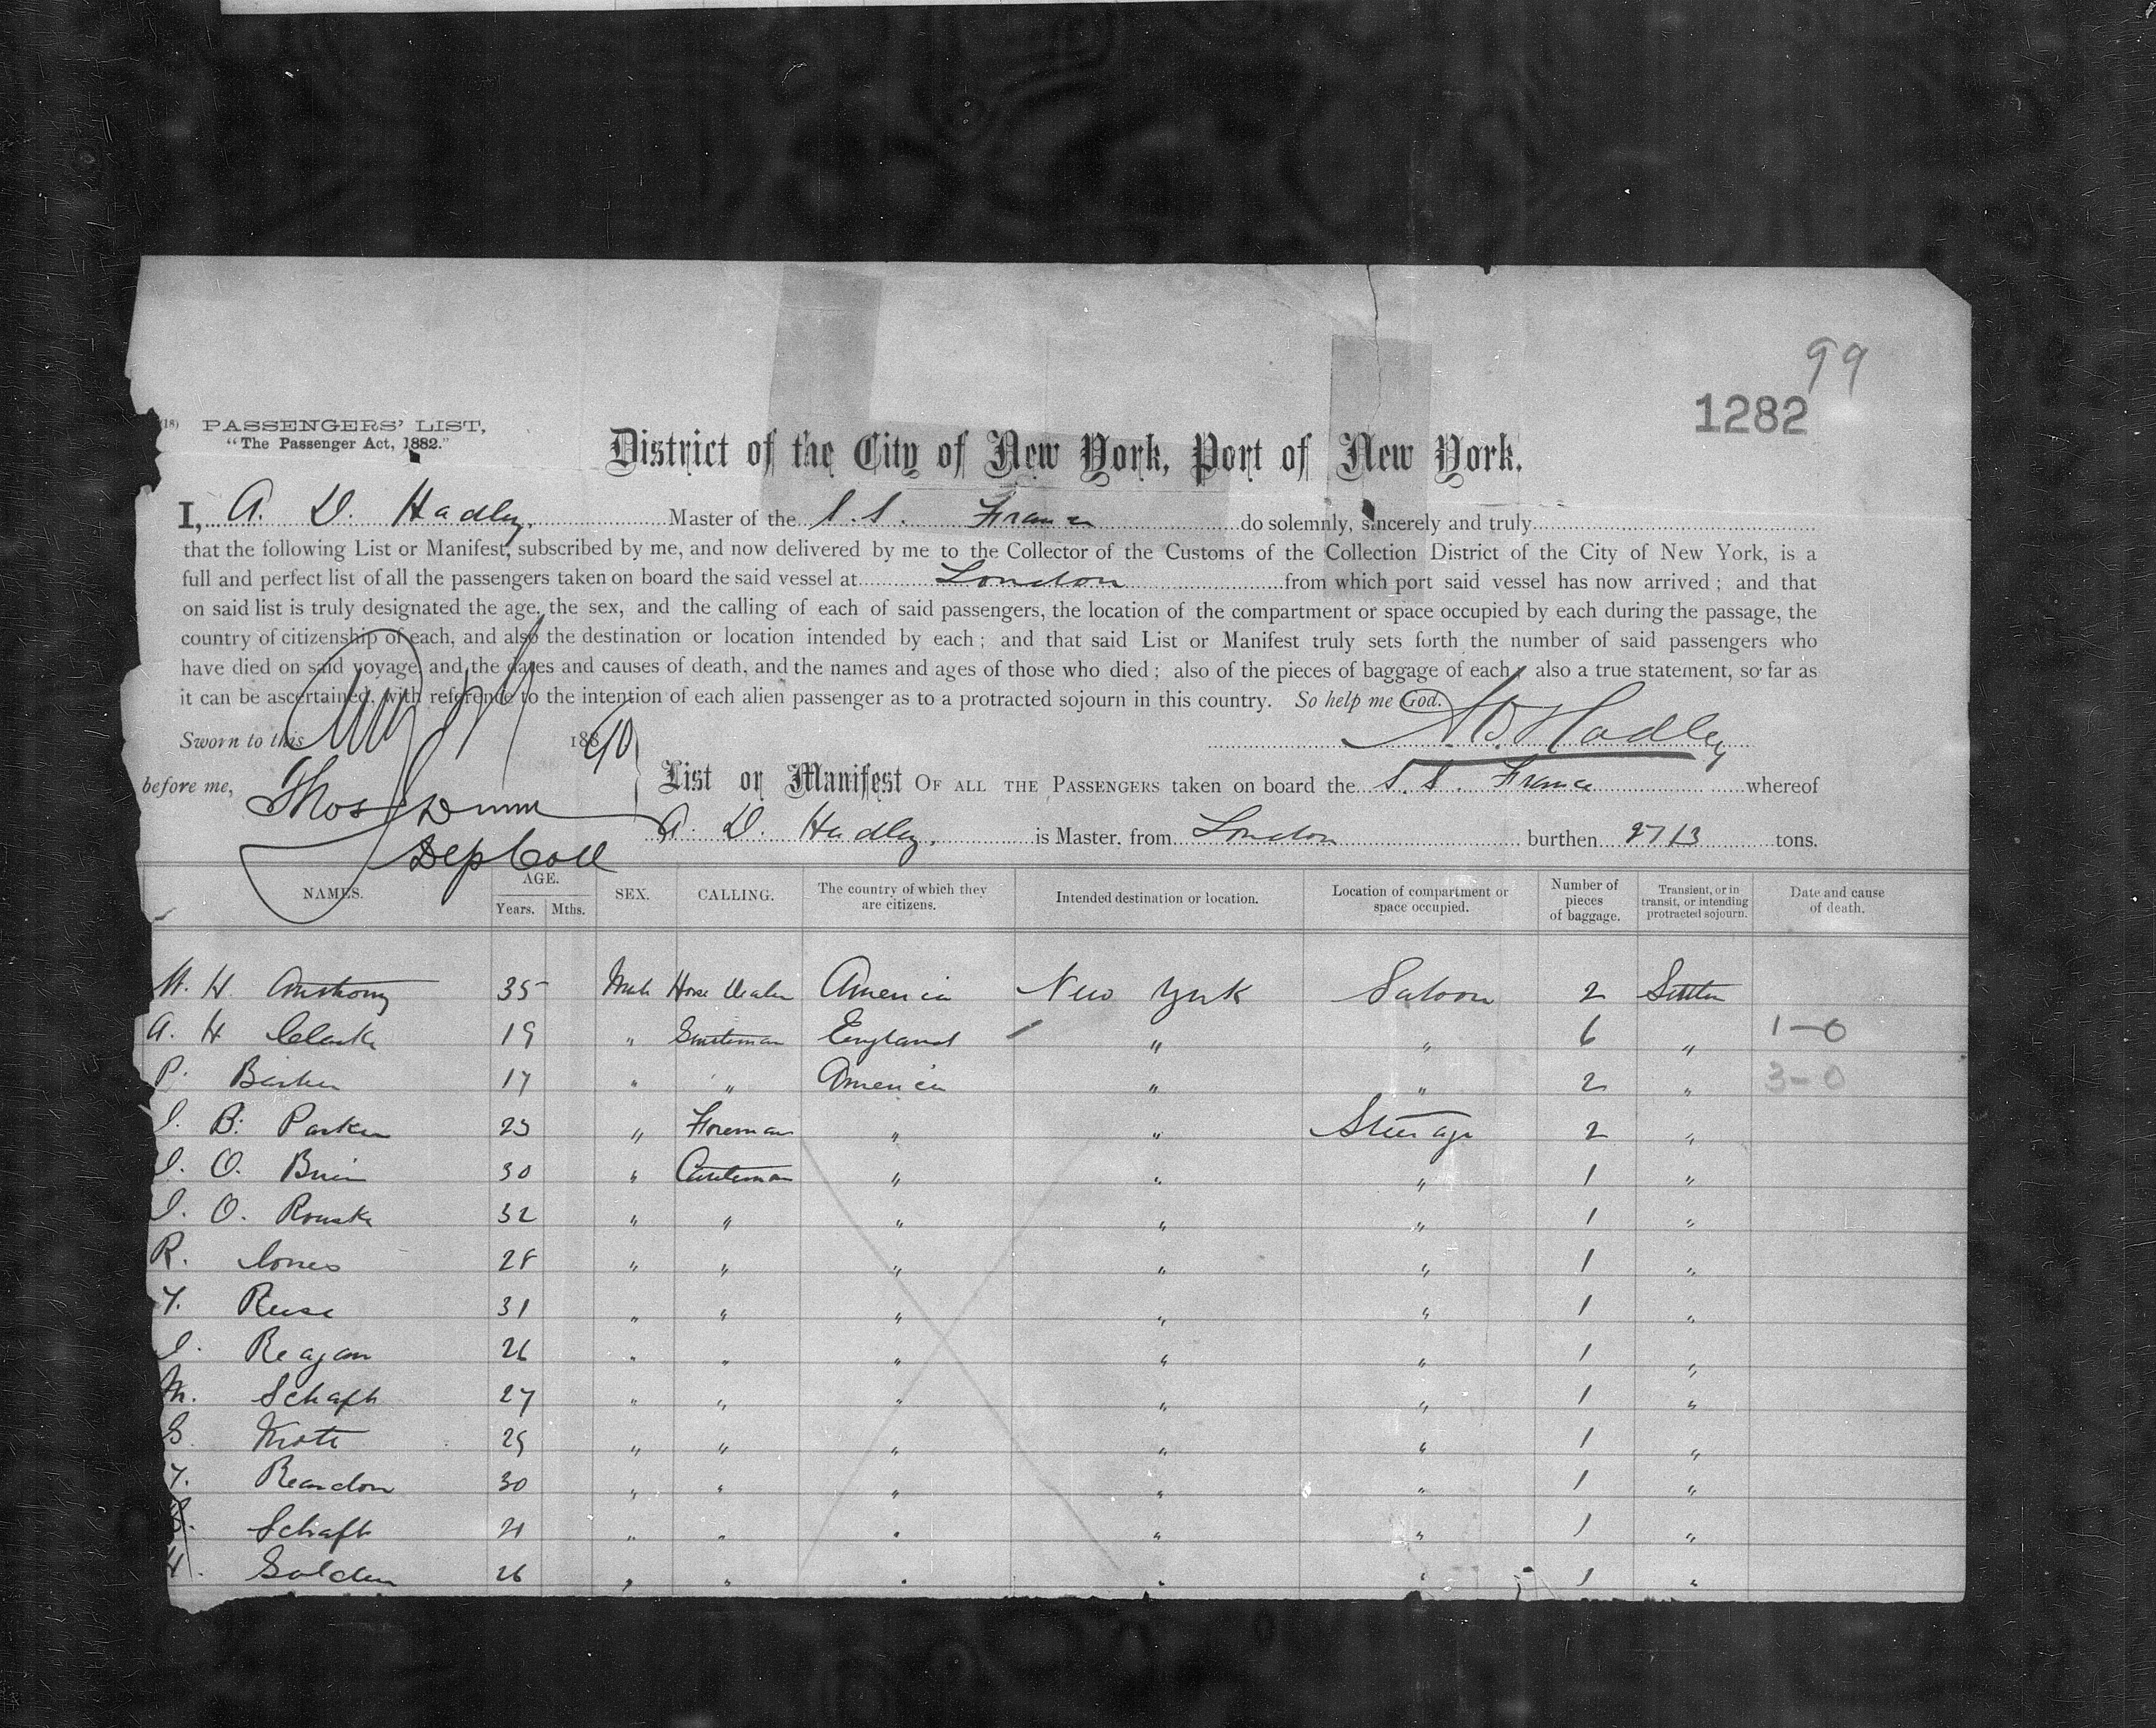 99
1282
(18) PASSENGERS' LIST,
"The Passenger Act, 1882."
District of the City of New York, Port of New York.
I, A. D. Hadley, Master of the S.S. France do solemnly, sincerely and truly
that the following List or Manifest, subscribed by me, and now delivered by me to the Collector of the Customs of the Collection District of the City of New York, is a
full and perfect list of all the passengers taken on board the said vessel at London from which port said vessel has now arrived; and that
on said list is truly designated the age, the sex, and the calling of each of said passengers, the location of the compartment or space occupied by each during the passage, the
country of citizenship of each, and also the destination or location intended by each; and that said List or Manifest truly sets forth the number of said passengers who
have died on said voyage, and the dates and causes of death, and the names and ages of those who died; also of the pieces of baggage of each; also a true statement, so far as
it can be ascertained, with reference to the intention of each alien passenger as to a protracted sojourn in this country. So help me God.
Sworn to this 188 90 A.D. Hadley
before me, Thos Dunn
Dep Coll
List or Manifest OF ALL THE PASSENGERS taken on board the S.S. France whereof
A. D. Hadley, is Master, from London burthen 2713 tons.
NAMES. AGE. Years. Mths. SEX. CALLING. The country of which they are citizens. Intended destination or location. Location of compartment or space occupied. Number of pieces of baggage. Transient, or in transit, or intending protracted sojourn. Date and cause of death.
W. H. Anthony 35 Male Horse Dealer America New York Saloon 2 Settler
A. H. Clark 19 " Gentleman England " " 6 " 1-0
P. Barker 17 " " America " " 2 " 3-0
J. B. Parker 23 " Foreman " " Steerage 2 "
J. O. Brien 30 " Cattleman " " " 1 "
J. O. Rourke 32 " " " " " 1 "
R. Jones 28 " " " " " 1 "
T. Reese 31 " " " " " 1 "
J. Reagan 26 " " " " " 1 "
M. Schaft 27 " " " " " 1 "
G. 29 " " " " " 1 "
T. Reardon 30 " " " " " 1 "
Schaft 21 " " " " " 1 "
H. Golden 26 " " " " " 1 "